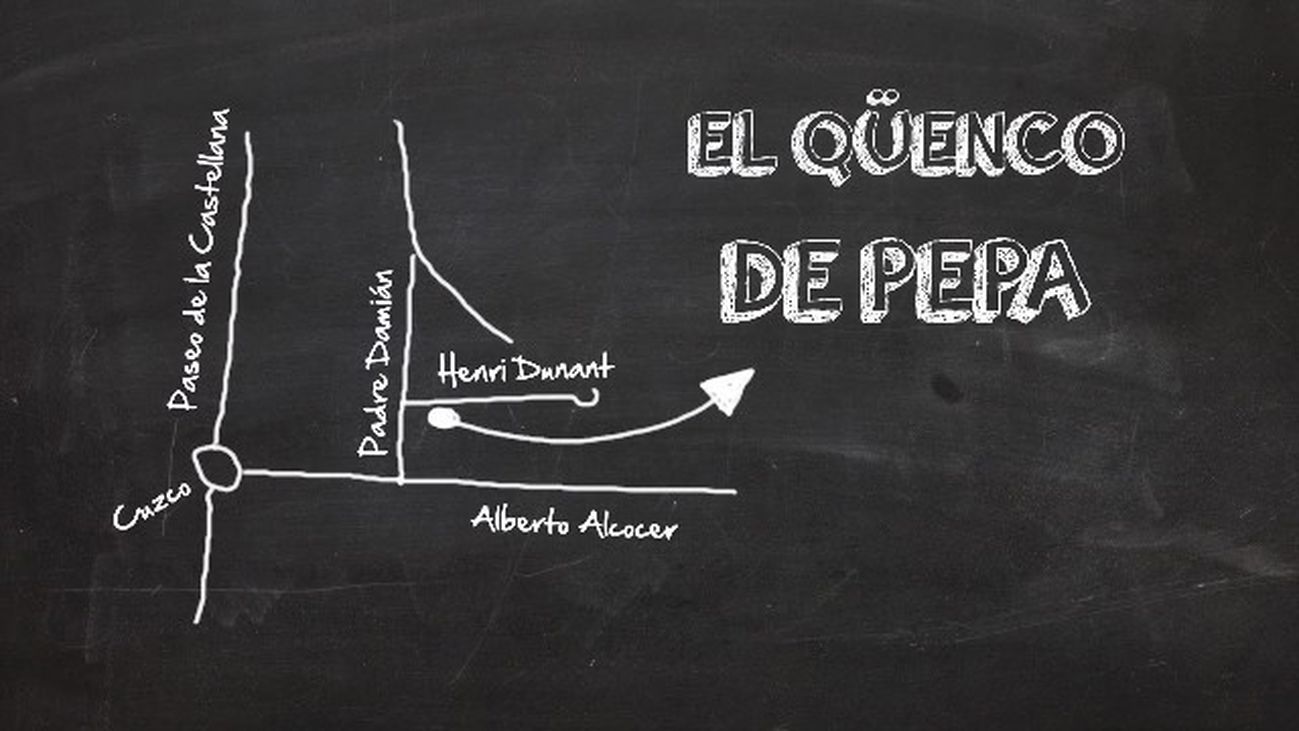 EL QÜENCO
DE PEPA
Paseo de la Castellana
Padre Damián
Henri Dunant
Cuzco
Alberto Alcocer